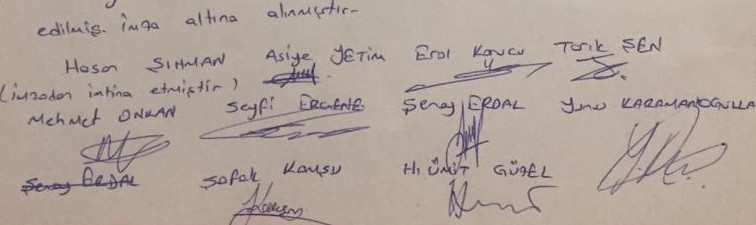 edilmiş. imza altına alınmıştır.
Hasan SIHMAN Asiye YETİM Erol Kavcu Tarık ŞEN
(imzadan imtina etmiştir)
Mehmet ONKAN Seyfi ERGENE Şenay ERDAL Yunu KARAMANOĞULLA
Şenay ERDAL Şafak KAVŞU H. ÜMİT GÜZEL